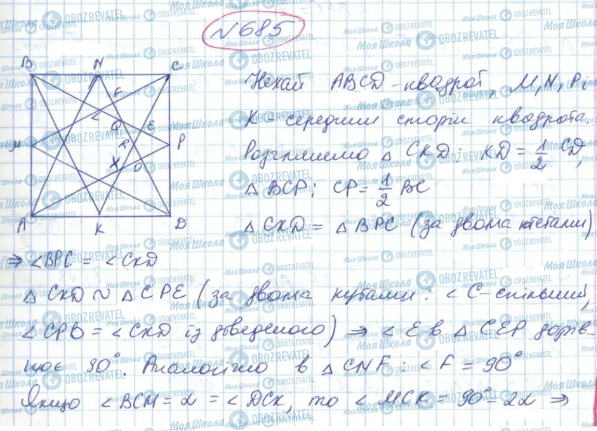 №685
B N C
F
L
Q E
M R P
X O
A K D
Нехай ABCD - квадрат, M, N, P,
K - середини сторін квадрата.
Розглянемо △ CKD: KD = 1/2 CD,
△ BCP; CP = 1/2 BC
△ CKD = △ BPC (за двома катетами)
⇒ ∠BPC = ∠CKD
△ CKD ~ △ CPE (за двома кутами: ∠ C - спільний,
∠ CPB = ∠ CKD із доведеного) ⇒ ∠ E в △ CEP дорів-
нює 90°. Аналогічно в △ CNF: ∠ F = 90°
Якщо ∠ BCM = α = ∠ DCK, то ∠ MCK = 90° - 2α ⇒
Моя Школа
OBOZREVATEL